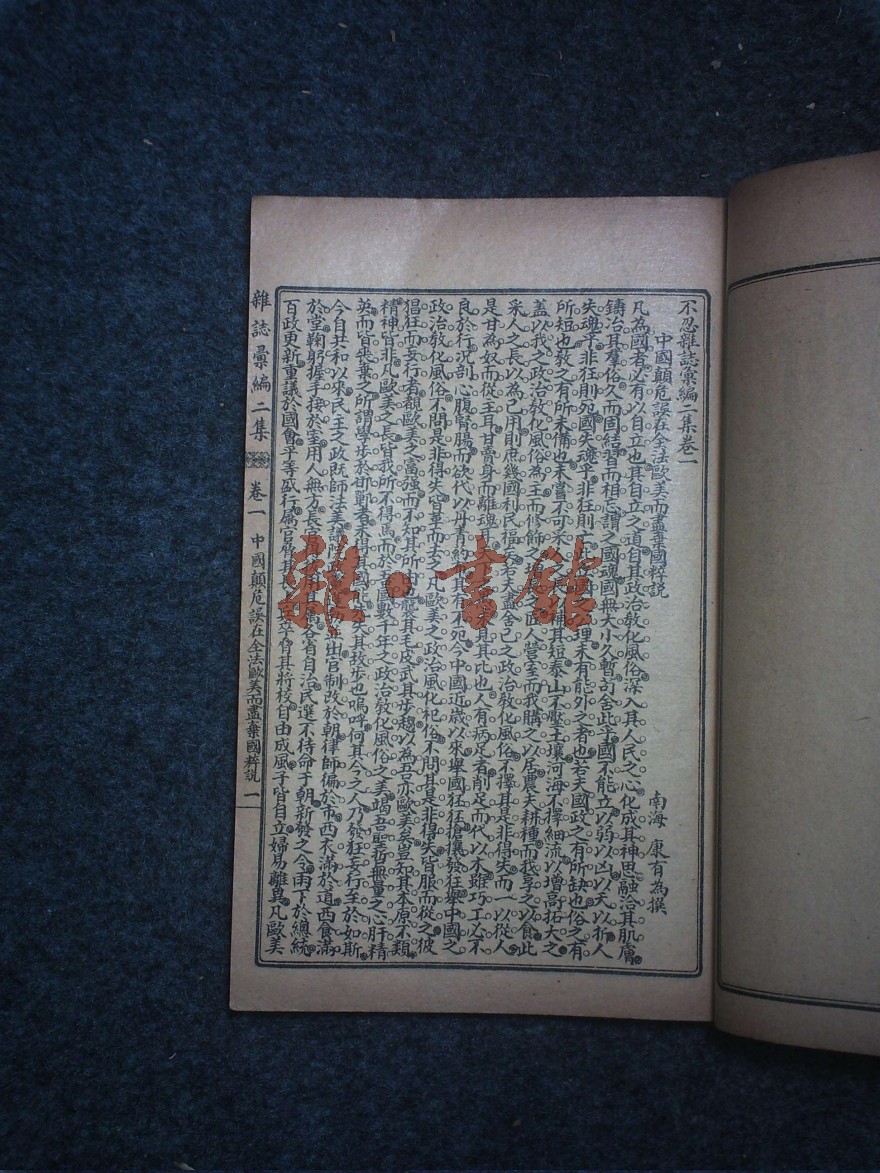 不忍雜誌彙編二集卷一
中國顛危誤在全法歐美而盡棄國粹說
南海 康有為撰
凡為國者必有以自立也其自立之道自其政治教化風俗深入其人民之心化成其神思融洽其肌膚
鑄冶其羣俗久而固結習而相忘謂之國魂國無大小久暫苟舍此乎國不能立以弱以凶以夭以折人
失魂乎非狂則死國失魂乎非狂則
理未有能外之者也若夫國政之有所缺也俗之有
所短也教之有所未備也未嘗不可采人
補其短泰山不壓土壤河海不擇細流以增高拓大之
蓋以我之政治教化風俗為主而修飾之
匠人營室而我購之以居農夫耕種而我享之以食此
采人之長以為己用則庶幾國利民福矣若夫盡舍己之政治教化風俗不擇其是非得失而一以從人
是甘為奴而從主耳甘鬻身而離魂
見其比也人有病足者削足而代以木雖巧工必不
良於行況剖心腹腎腸而欲代以丹青
其有不怨今中國近歲以來舉國狂狂搶攘發狂舉中國之
政治教化風俗不問是非得失皆革而去之凡歐美之政治風化祀俗不問其是非得失皆服而從之彼
猖狂而妄行者覩歐美之富強而不知其所由
襲其毛皮武其步趨以為吾亦歐美矣豈知其本原不類
精神皆非凡歐美之長皆我所不得焉而於
國數千年之政治教化風俗之美竭吾聖哲無量之心肝精
英而皆喪棄之所謂學步於邯鄲者未得其國能
失其故步也嗚呼何其今之人乃發狂妄行至於如斯
今自共和以來民主之政既師法美
出官制改於朝律師偏於市西衣滿於道西食滿
於堂鞠躬握手接於室用人無方長官
各省自治民選不待命于朝新發之令雨下於總統
百政更新重議於國會平等盛行屬官脅其長
卒脅其將校自由成風子皆自立婦易離異凡歐美
雜誌彙編二集
卷一 中國顛危誤在全法歐美而盡棄國粹說 一
雜·書館